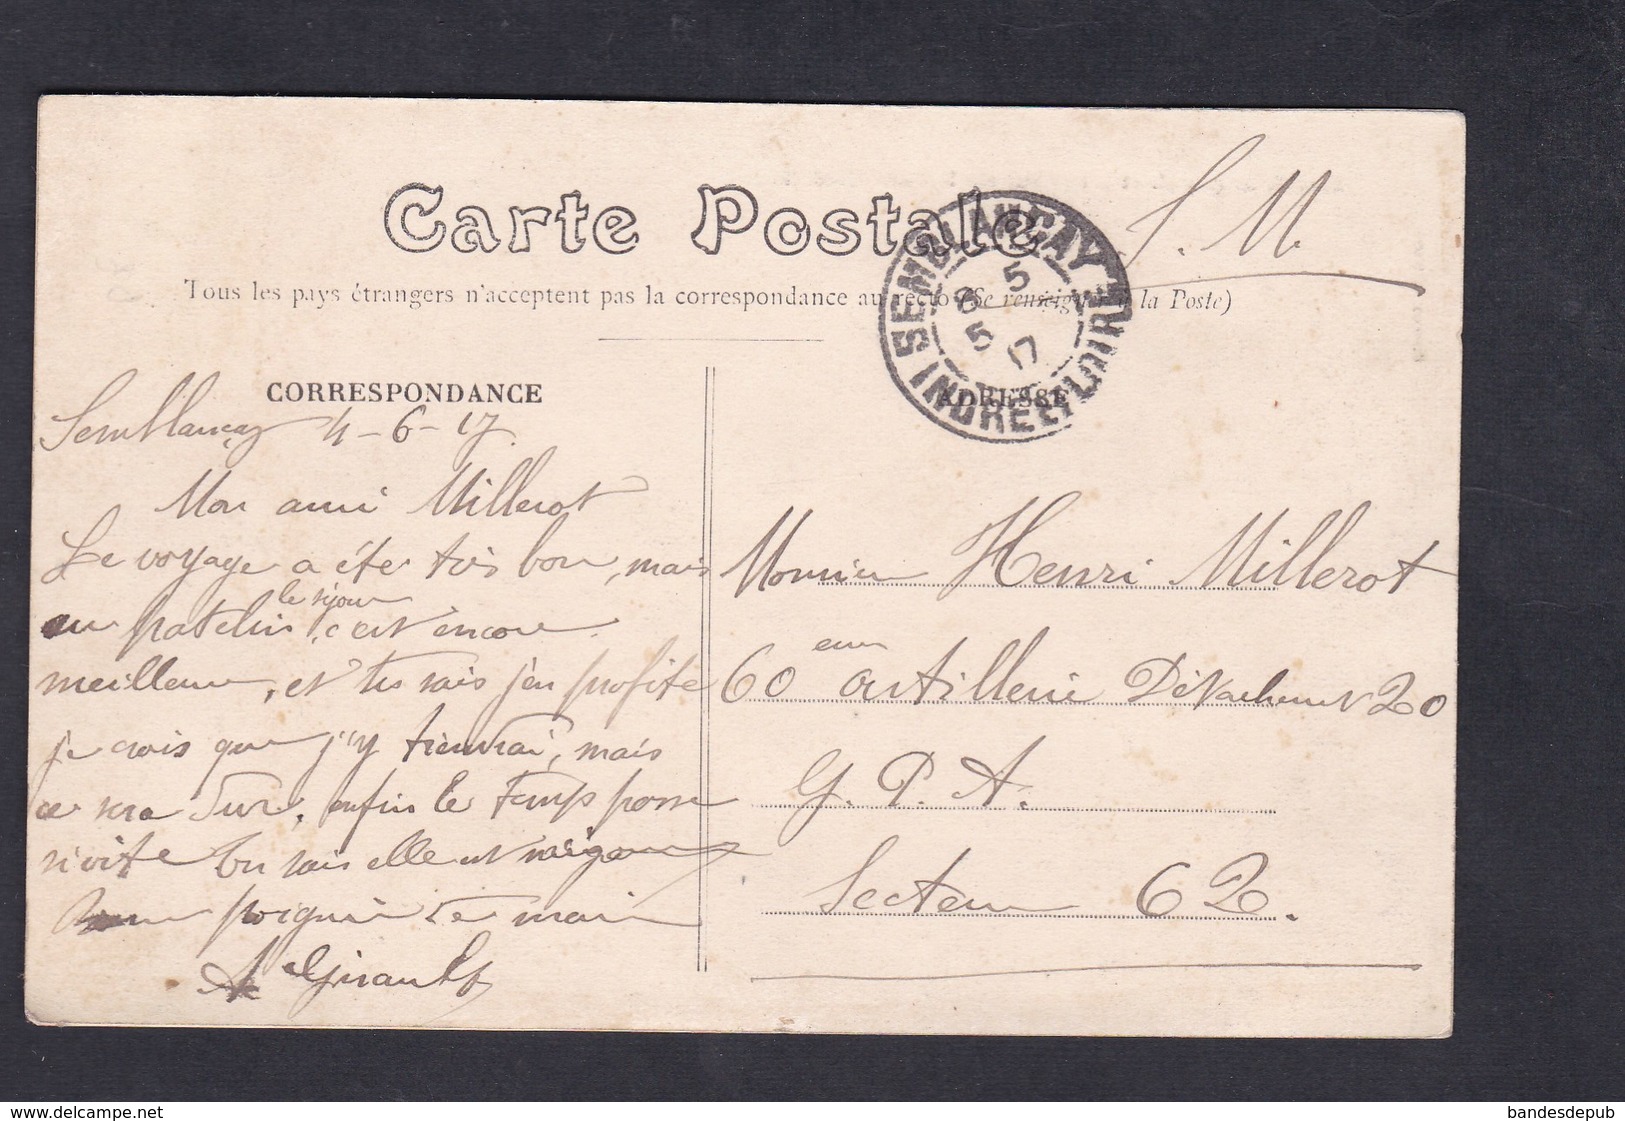 Carte Postale
S. M.
Tous les pays étrangers n'acceptent pas la correspondance au recto (Se renseigner à la Poste)
SEMBLANCAY INDRE & LOIRE
5
6
5 17
CORRESPONDANCE
ADRESSE
Semblançay 4-6-17.
Mon ami Millerot
Le voyage a été très bon, mais
au patelin le séjour c'est encore
meilleur, et tu sais j'en profite
je crois que j'y tiendrai, mais
ce sera dur, enfin le temps passe
si vite tu sais elle est
poignée de main
A Girault
Monsieur Henri Millerot
60 eme artillerie Détachement 20
G. P. A.
Secteur 62.
delcampe.net
bandesdepub